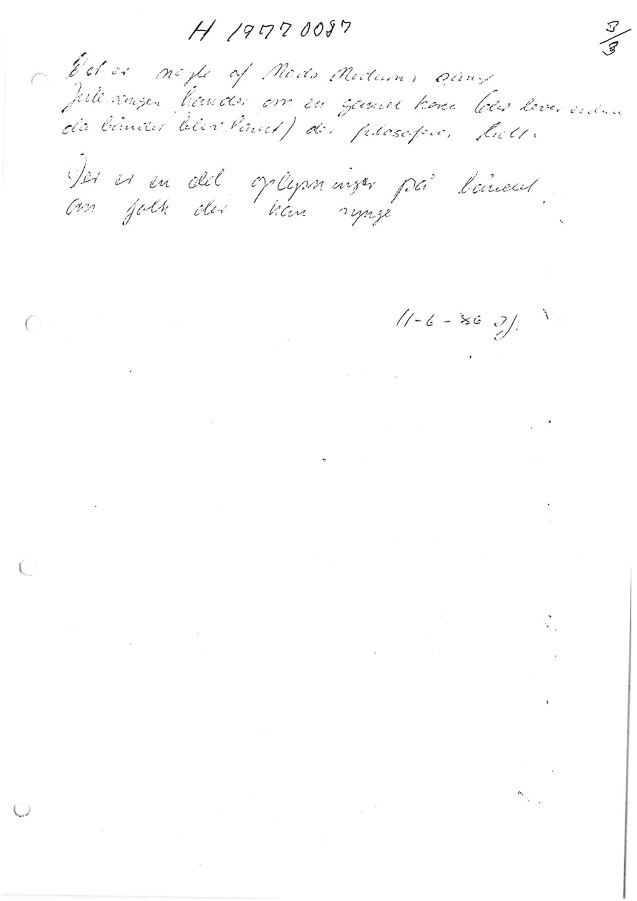 H 19770087
3/3
Det er nogle af Mads Madsens
Julesangen handler om en gammel kone (der lever endnu
da båndet blev lånt) der filosoferer lidt.
Der er en del oplysninger på båndet
om folk der kan synge
11-6-86